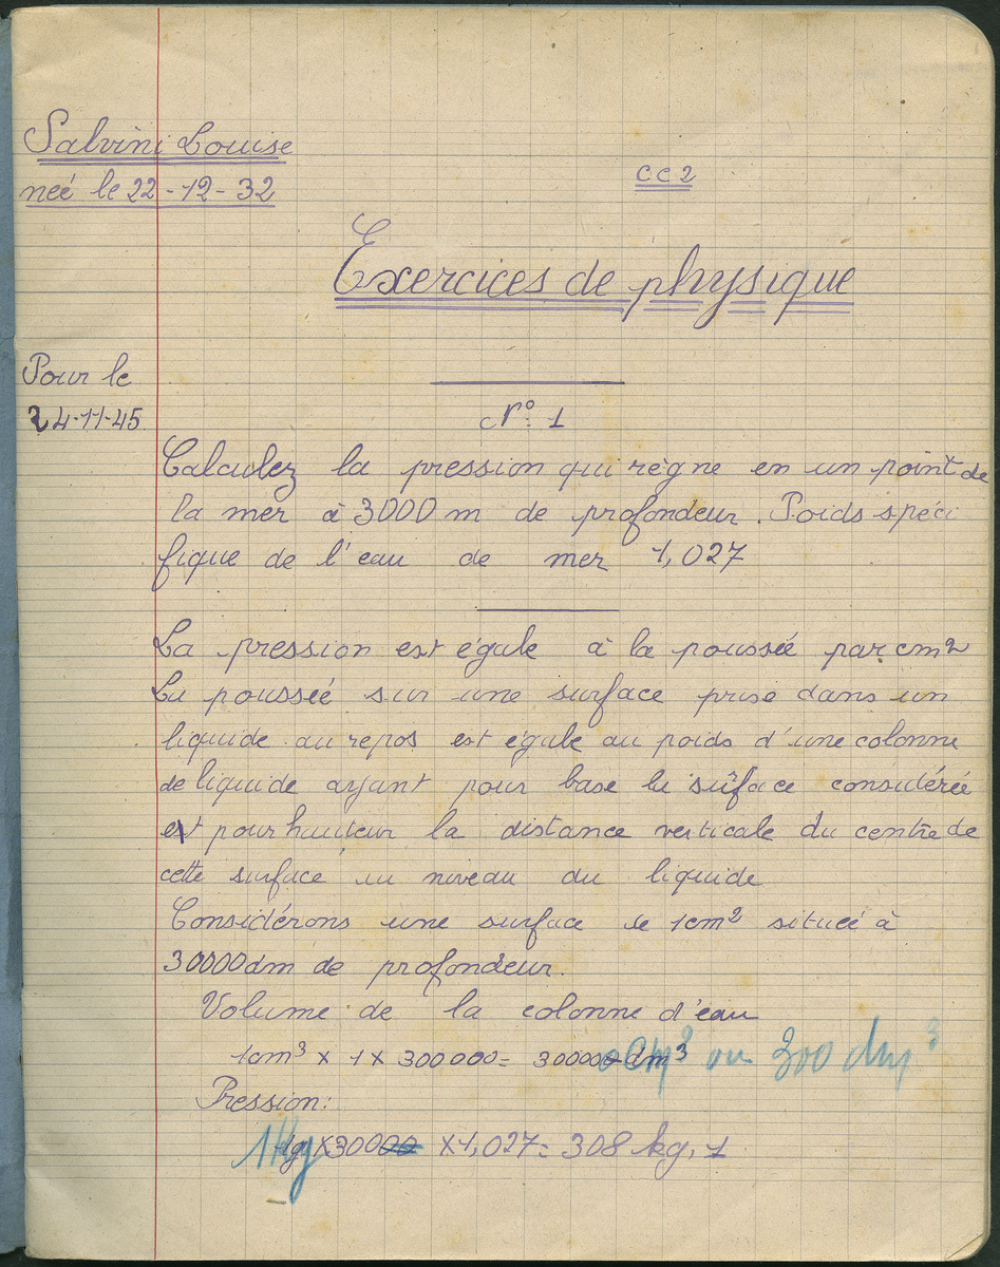 Salvini Louise
neé le 22-12-32
CC2
Exercices de physique
Pour le
24-11-45
N° 1
Calculez la pression qui règne en un point de
la mer à 3000 m de profondeur. Poids spéci
fique de l'eau de mer 1,027
La pression est égale à la pousseé par cm2
La pousseé sur une surface prise dans un
liquide au repos est égale au poids d'une colonne
de liquide ayant pour base la surface considéreé
et pour hauteur la distance verticale du centre de
cette surface au niveau du liquide
Considérons une surface de 1cm² situeé à
30000dm de profondeur.
Volume de la colonne d'eau
1cm³ x 1 x 300000 = 300000 cm³ ou 300 dm³
Pression:
1Kg x 300 x 1,027 = 308 kg, 1